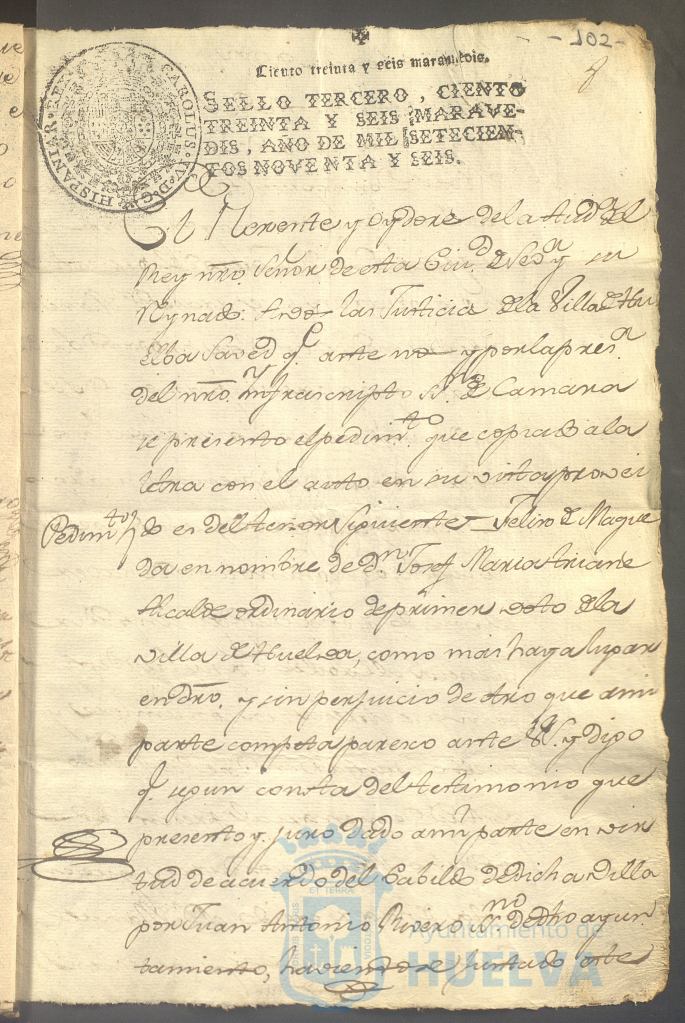 -102-
Ciento treinta y seis maravedis.
CAROLUS · IV · D · G · HISPANIAR · REX
SELLO TERCERO, CIENTO
TREINTA Y SEIS MARAVE-
DIS, AÑO DE MIL SETECIEN-
TOS NOVENTA Y SEIS.
El Rexente y Oydores de la Aud.ª del
Rey nro. Señor de esta Ciu.d de Sev.ª y su
Reynado: A vos las Justicias de la Villa de Hu
elba Saved q.e ante nos y por la pres.
del nro. Ynfrascripto S.no de Camara
se presento el pedim.to que copiado a la
letra con el auto en su vista provei
Pedim.to
do es del tenor siguiente = Felix de Mague
da en nombre de d.n Josef Maria
Alcalde ordinario de primer voto de la
villa de Huelva, como mas haya lugar
en dro. y sin perjuicio de otro que a mi
parte competa paresco ante V. y digo
q.e segun consta del testimonio que
presento y juro dado a mi parte en vir
tud de acuerdo del Cabildo de dicha villa
por Juan Antonio Rivero ss.no de dho ayun
tamiento, haviendose juntado este
Ayuntamiento de
HUELVA